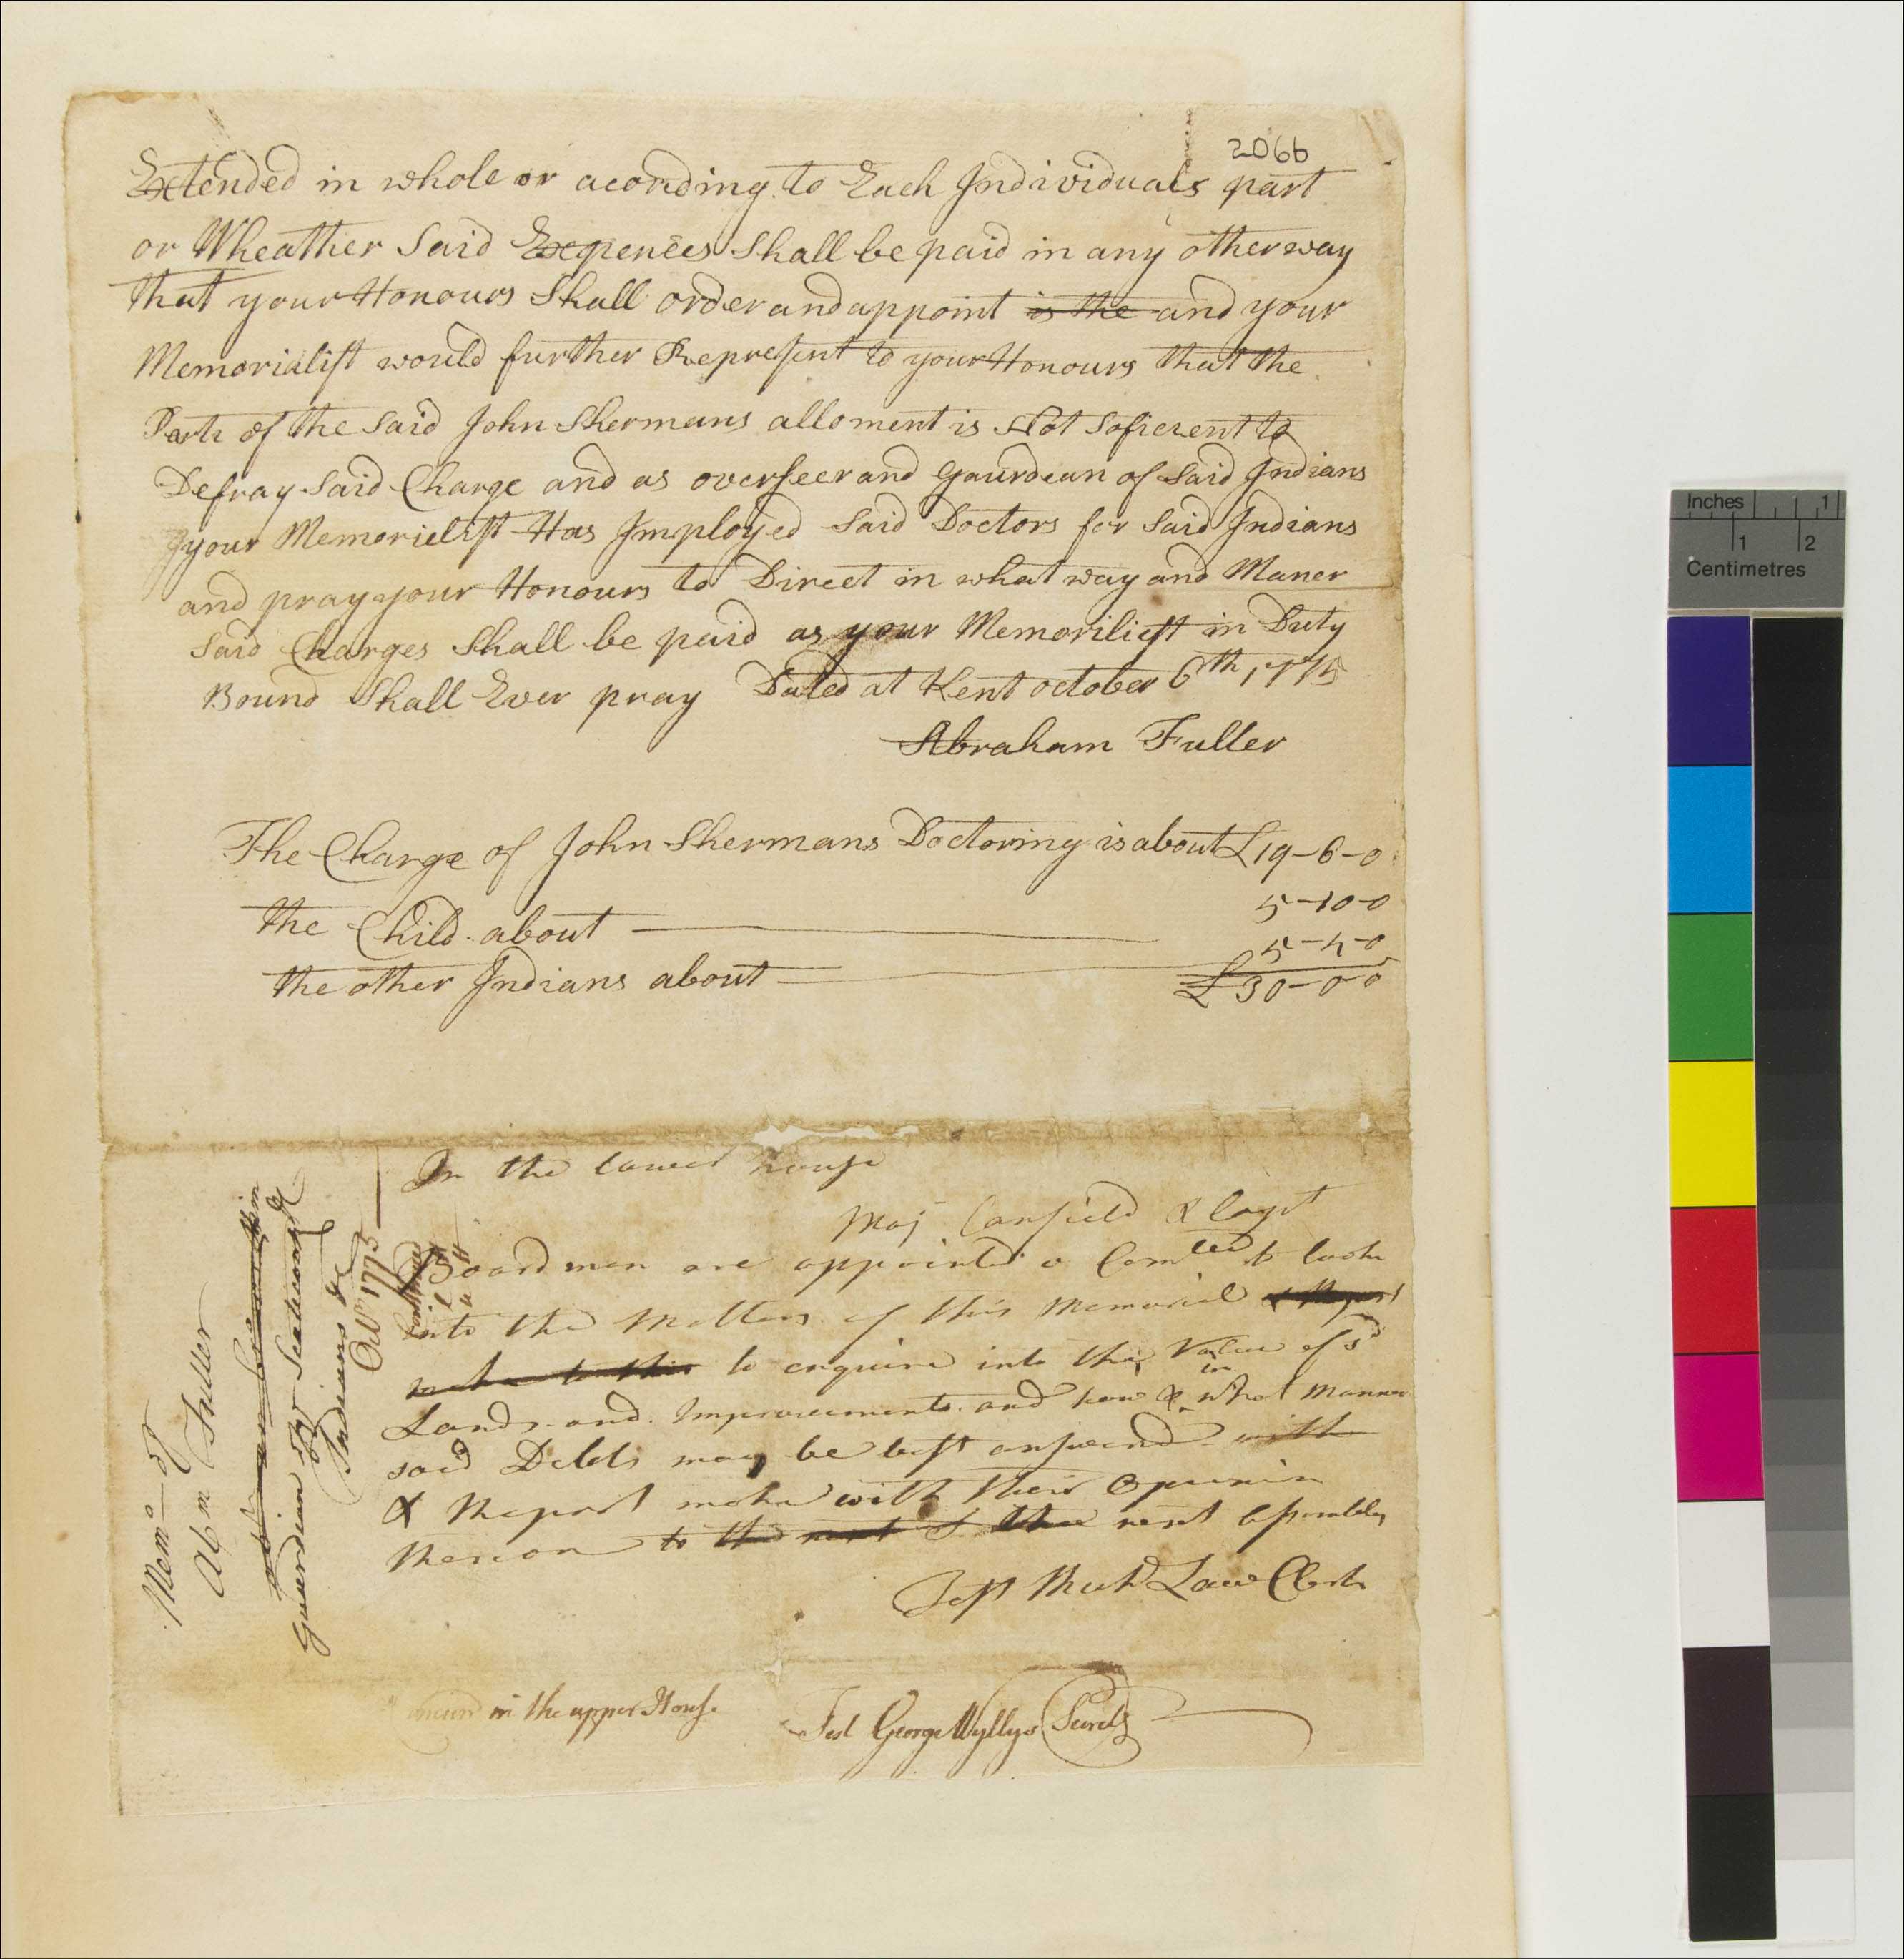 206b
Extended in whole or acording to Each Individuals part
or Wheather Said Expences Shall be paid in any other way
that your Honours Shall order and appoint is the and your
Memorialist would further Represent to your Honours that the
Part of the Said John Shermans alloment is Not Soficient to
Defray Said Charge and as overseer and Gaurdean of Said Indians
your Memorielist Has Imployed Said Doctors for Said Indians
and pray your Honours to Direct in what way and Maner
Said Charges Shall be paid as your Memoriliest in Duty
Bound Shall Ever pray Dated at Kent october 6th 1775
Abraham Fuller
The Charge of John Shermans Doctoring is about £19-6-0
the Child about 5-10-0
the other Indians about 5-4-0
£30-0-0
In the lower house
Maj Canfield & Capt
Boardman are appointed a Comtee to look
into the Matters of this Memorial & Report
make to this to enquire into the Value of sd
Lands and Improvements and how & in what Manner
said Debts may be best answered with
& Report make with their Opinion
thereon to the next next Assembly
Test Richd Law Clerk
in the upper House
Test George Wyllys Secrety
Memo of
Abm Fuller
Guardian of Scatecook
Indians &c
Octr 1775
Continued